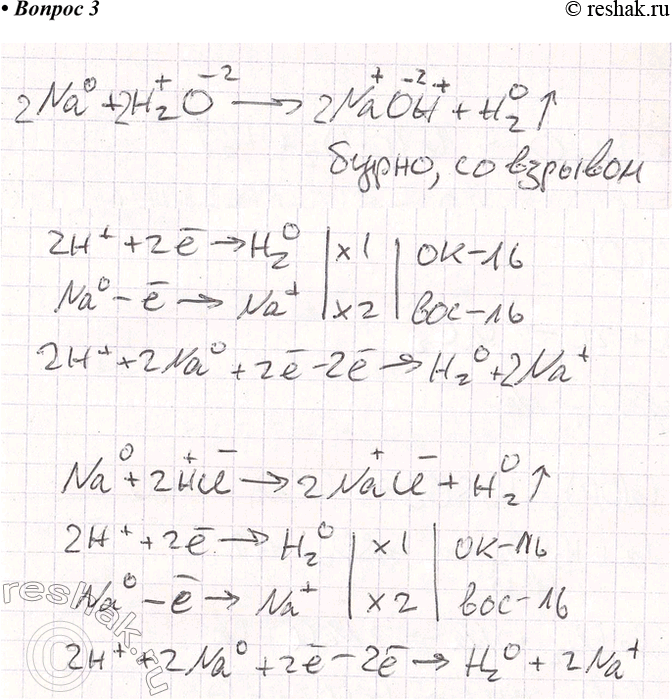 • Вопрос 3
© reshak.ru
2Na⁰ + 2H₂⁺O⁻² → 2Na⁺O⁻²H⁺ + H₂⁰↑
бурно, со взрывом
2H⁺ + 2ē → H₂⁰ | x1 | ок-ль
Na⁰ - ē → Na⁺ | x2 | вос-ль
2H⁺ + 2Na⁰ + 2ē - 2ē → H₂⁰ + 2Na⁺
Na⁰ + 2H⁺Cl⁻ → 2Na⁺Cl⁻ + H₂⁰↑
2H⁺ + 2ē → H₂⁰ | x1 | ок-ль
Na⁰ - ē → Na⁺ | x2 | вос-ль
2H⁺ + 2Na⁰ + 2ē - 2ē → H₂⁰ + 2Na⁺
reshak.ru
©